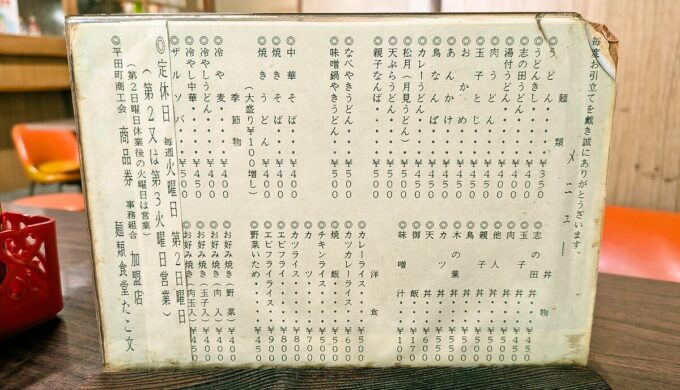 毎度お引立てを戴き誠にありがとうございます。
メニュー
麺類
◎うどん・・・・・¥350
◎うどんきし・・・¥400
◎志の田うどん・・¥400
◎湯付うどん・・・¥400
◎肉うどん・・・・¥450
◎玉子とじ・・・・¥400
◎おかめ・・・・・¥450
◎あんかけ・・・・¥450
◎鳥なんば・・・・¥450
◎カレーうどん・・¥450
◎松月(月見うどん)・¥400
◎天ぷらうどん・・¥500
◎親子なんば・・・¥500
◎なべやきうどん・・¥500
◎味噌鍋やきうどん・・¥500
◎中華そば・・・・¥400
◎焼きそば・・・・¥400
◎焼きうどん・・・¥400
(大盛り¥100増し)
季節物
◎冷や麦・・・・・¥400
◎冷やしうどん・・¥400
◎冷やし中華・・・¥500
◎ザルソバ・・・・¥450
丼物
◎志の田丼・・・¥400
◎玉子丼・・・¥400
◎肉丼・・・¥450
◎他人丼
◎親子丼
◎鳥丼
◎木の葉丼
◎カツ丼
◎天丼
◎御飯・・・¥170
◎味噌汁・・¥100
洋食
◎カレーライス・・¥500
◎カツカレーライス・¥600
◎焼飯・・・¥500
◎チキンライス・・¥500
◎カツ・・・¥700
◎カツライス・・・¥800
◎エビフライ・・・¥800
◎エビフライライス・¥900
◎野菜いため・・・¥450
◎お好み焼き(野菜)¥400
◎お好み焼き(肉入)¥400
◎お好み焼き(玉子入)¥400
◎お好み焼き(肉玉入)¥450
◎定休日 毎週火曜日 第2日曜日
(第2又は第3火曜日営業)
(第2日曜日休業後の火曜日は営業)
◎平田町商工会 商品券 事務組合 加盟店
麺類食堂たこ文